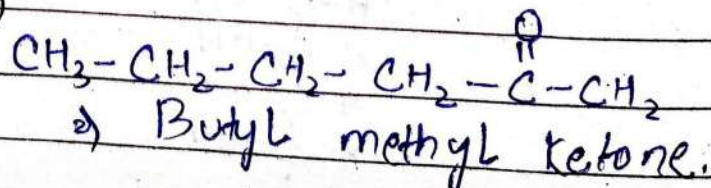 O
CH3-CH2-CH2-CH2-C-CH2
a) Butyl methyl ketone.